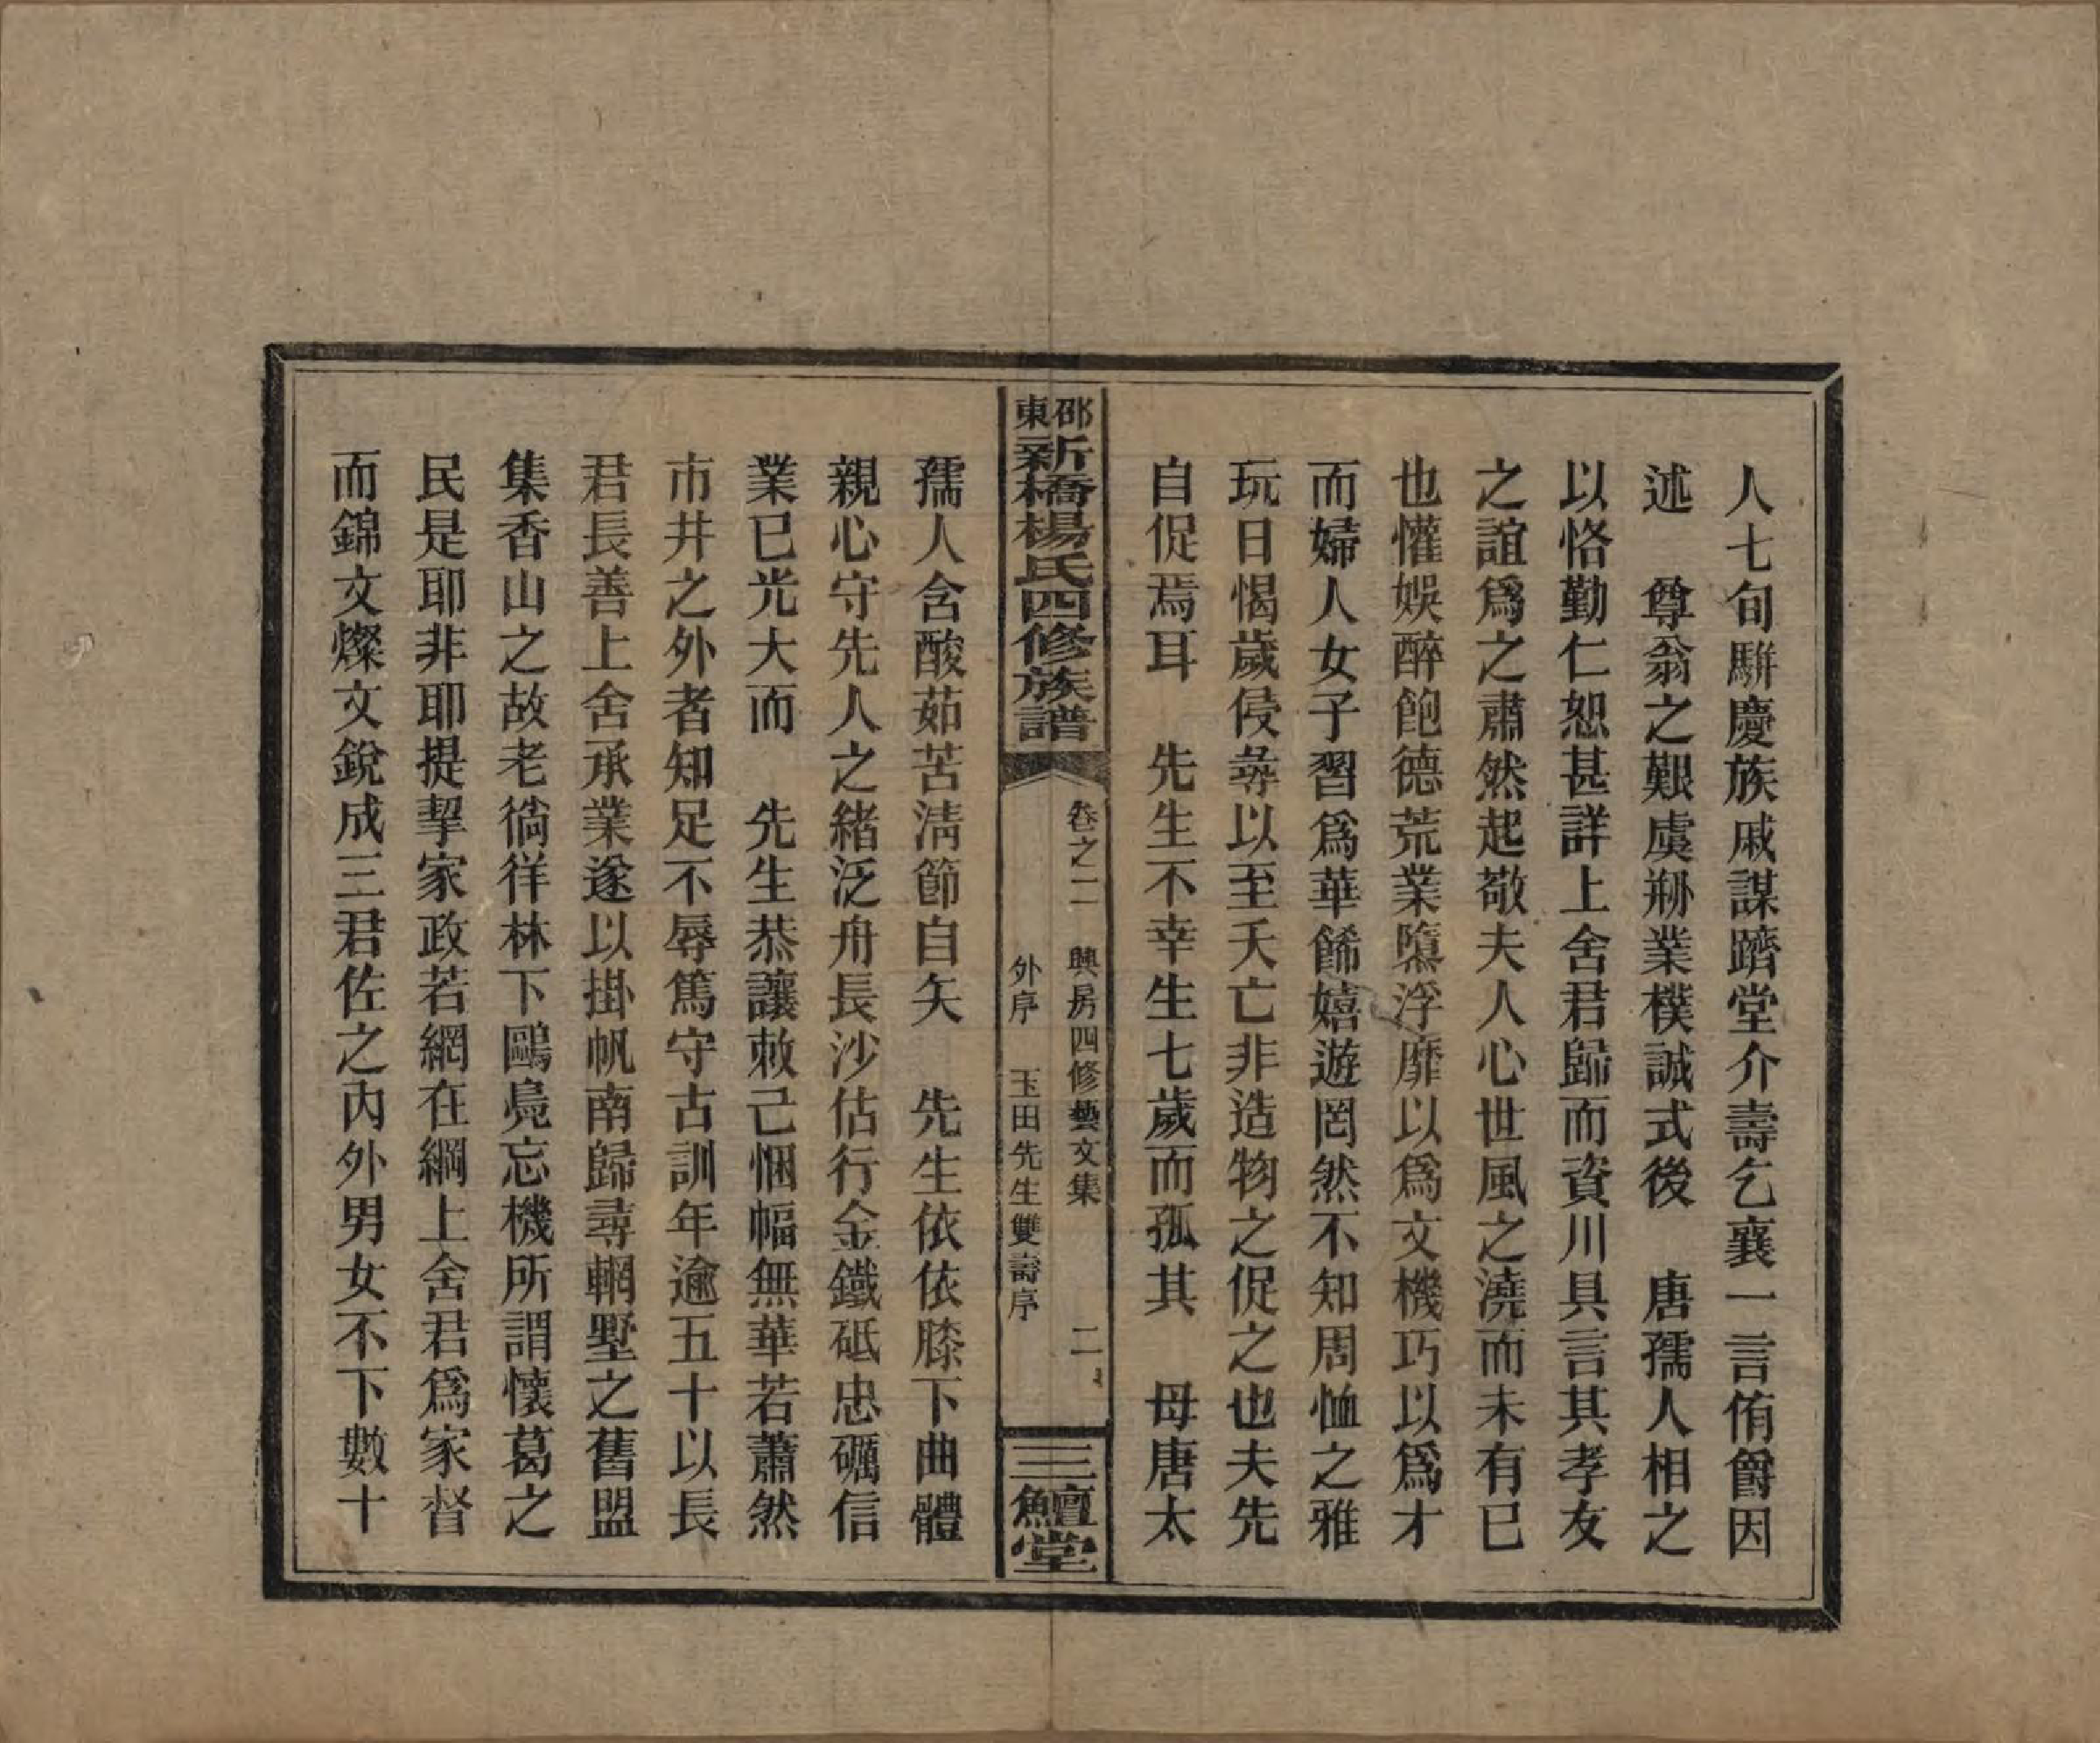 人七旬駢慶族戚謀躋堂介壽乞襄一言侑爵因
述　尊翁之艱虞剏業樸誠式後　唐孺人相之
以恪勤仁恕甚詳上舍君歸而資川具言其孝友
之誼爲之肅然起敬夫人心世風之澆而未有已
也懽娛醉飽德荒業隳浮靡以爲文機巧以爲才
而婦人女子習爲華餙嬉遊罔然不知周恤之雅
玩日愒歲侵尋以至夭亡非造物之促之也夫先
自促焉耳　先生不幸生七歲而孤其　母唐太
邵東新橋楊氏四修族譜
卷之二　興房四修藝文集　二
外序　玉田先生雙壽序
三鱣堂
孺人含酸茹苦淸節自矢　先生依依膝下曲體
親心守先人之緒泛舟長沙估行金鐵砥忠礪信
業已光大而　先生恭讓敕己悃幅無華若蕭然
市井之外者知足不辱篤守古訓年逾五十以長
君長善上舍承業遂以掛帆南歸尋輞墅之舊盟
集香山之故老徜徉林下鷗鳧忘機所謂懷葛之
民是耶非耶提挈家政若網在綱上舍君爲家督
而錦文燦文銳成三君佐之內外男女不下數十